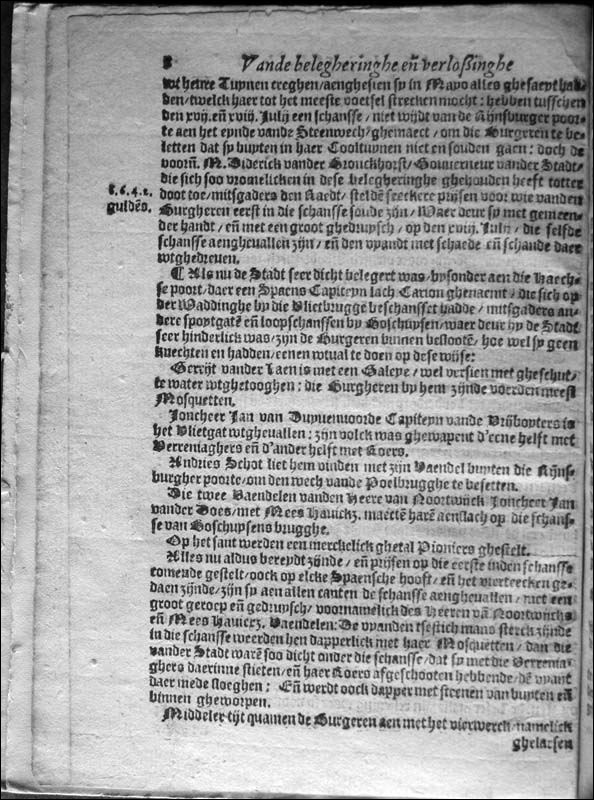 8 Vande belegheringhe, eñ verloßinghe
wt heure Tuynen creghen/aenghesien sy in Mayo alles ghesaeyt had-
den/twelck haer tot het meeste voetsel strecken mocht: hebben tusschen
den xvij. eñ xviij. Julij een schansse/ niet wijdt van de Rijnsburger poor-
te aen het eynde vande Steenwech/ghemaect/ om die Burgeren te be-
letten dat sy buyten in haer Cooltuynen niet en souden gaen: doch de
voorñ. M. Diderick vander Bronckhorst/Gouverneur vander Stadt/
die sich soo vromelicken in dese belegheringhe ghehouden heeft totter
doot toe/mitsgaders den Raedt/ steldē seeckere prijsen voor wie vanden
8.6.4.2. guldēs.
Burgheren eerst in die schansse soude zijn/ Waer deur sy met gemeen-
der handt/ eñ met een groot ghedruysch/ op den xviij. July/ die selfde
schansse aenghevallen zijn/ eñ den vyandt met schaede eñ schande daer
wtghedreven.
¶ Als nu de Stadt seer dicht belegert was/bysonder aen die Haech-
se poort/daer een Spaens Capiteyn lach Carion ghenaemt/ die sich op
der Waddinghe by die Vlietbrugge beschansset hadde/ mitsgaders an-
dere spoytgatē eñ loopschanssen by Boschuysen/waer deur hy de Stadt
seer hinderlich was/zijn de Burgeren binnen beslootē/ hoe wel sy geen
knechten en hadden/eenen wtual te doen op dese wijse:
Gerrijt vander Laen is met een Galeye/ wel versien met gheschut/
te water wtghetooghen: die Burgheren by hem zijnde voerden meest
Mosquetten.
Joncheer Jan van Duyuenvoorde Capiteyn vande Vrijbuyters is
het Vlietgat wtghevallen: zijn volck was ghewapent d'eene helft met
Verreniaghers eñ d'ander helft met Roers.
Andries Schot liet hem vinden met zijn Vaendel buyten die Rijns-
burgher poorte/om den wech vande Poelbrugghe te besetten.
Die twee Vaendelen vanden Heere van Noortwijck Joncheer Jan
vander Does/met Mees Havickz. maectē harē aenslach op die schans-
se van Boschuysens brugghe.
Op het sant werden een merckelick ghetal Pioniers ghestelt.
Alles nu aldus bereydt zijnde/ eñ prijsen op die eerste inden schansse
comende gestelt/oock op elcke Spaensche hooft/ eñ het vierteecken ge-
daen zijnde/zijn sy aen allen canten de schansse aenghevallen/ met een
groot geroep eñ gedruysch/ voornamelick des Heeren vā Noortwijcks
eñ Mees Havicxz. Vaendelen: De vyanden tsestich mans sterck zijnde
in die schansse weerden hen dapperlick met haer Mosquetten/ dan die
vander Stadt warē soo dicht onder die schansse/dat sy met die Verrenia-
ghers daerinne stieten/eñ haer Roers afgeschooten hebbende/dē vyant
daer mede sloeghen: Eñ werdt ooch dapper met steenen van buyten eñ
binnen gheworpen.
Middeler tijt quamen de Burgeren aen met het vierwerck/namelick
ghelasen